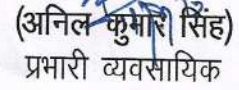 (अनिल कुमार सिंह)
प्रभारी व्यवसायिक